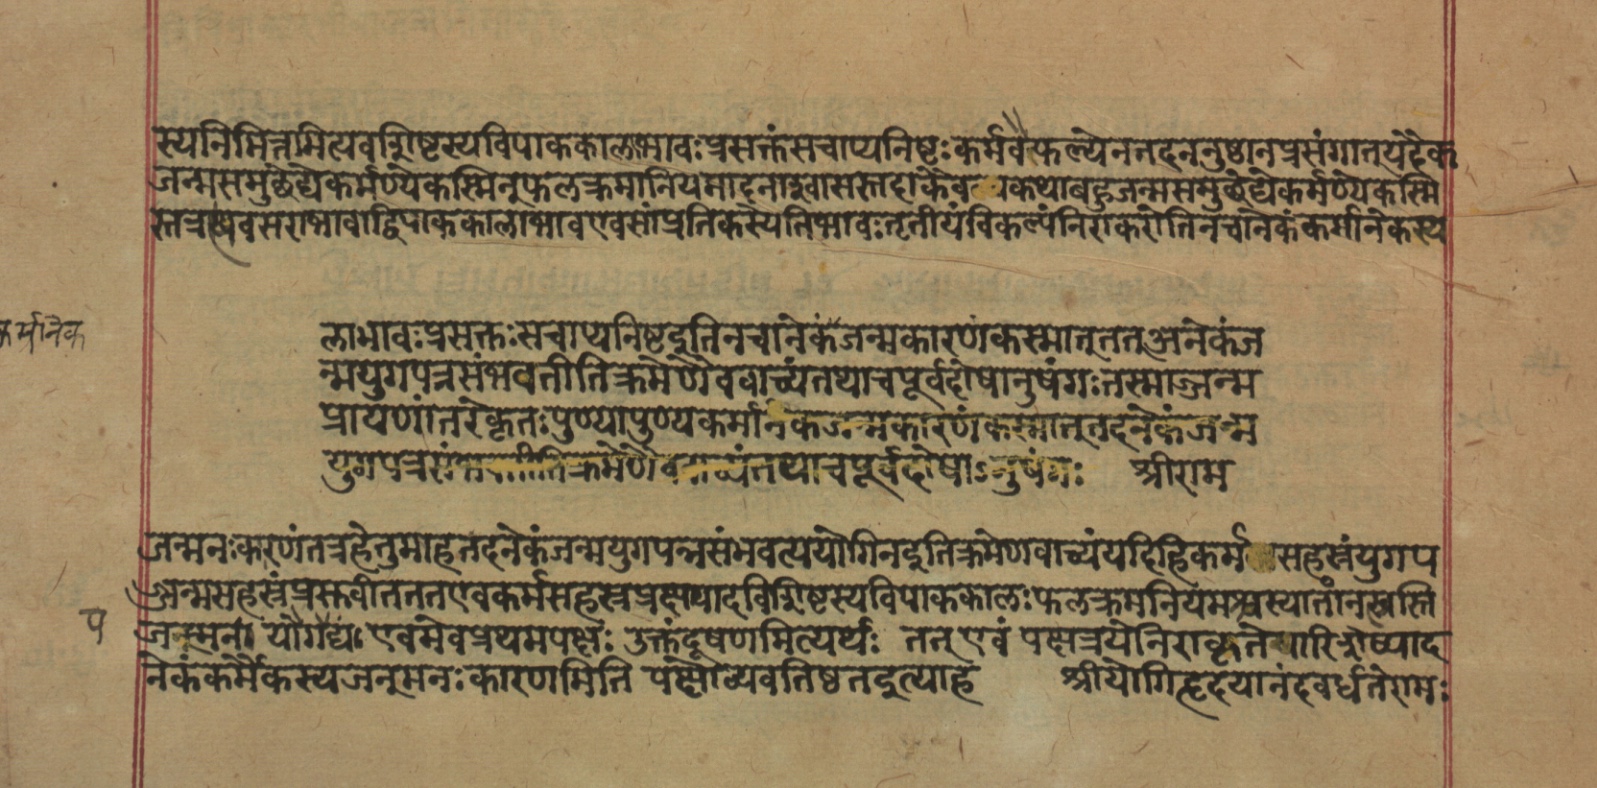 स्यनिमित्तमित्यवशिष्टस्यविपाककालाभावःप्रसक्तंसचाप्यनिष्टःकर्मवैफल्येनतदननुष्ठानप्रसंगात्यदैक
जन्मसमुछेद्यैकर्मण्येकस्मिन्फलक्रमानियमादनाश्वासस्तदाकैव कथाबहुजन्मसमुछेद्येकर्मण्येकस्मि
स्तत्रह्यवसराभावाद्विपाककालाभावएवसांप्रतिकस्येतिभावःतृतीयंविकल्पंनिराकरोतिनचानेकंकर्मानेकस्य
कर्मानेक
लाभावःप्रसक्तःसचाप्यनिष्टइतिनचानेकंजन्मकारणंकस्मात्तत्अनेकंज
न्मयुगपन्नसंभवतीतिक्रमेणैववाच्यंतथाचपूर्वदोषानुषंगःतस्माज्जन्म
प्रायणांतरेकृतःपुण्यापुण्यकर्मानेकजन्मकारणंकस्मात्तदनेकंजन्म
युगपन्नसंभवतीतिक्रमेणैववाच्यंतथाचपूर्वदोषाऽनुषंगः श्रीराम
जन्मनःकारणंतत्रहेतुमाहतदनेकंजन्मयुगपन्नसंभवत्ययोगिनइतिक्रमेणवाच्यंयदिहिकर्मसहस्रंयुगप
ज्जन्मसहस्रंप्रसवीतततएवकर्मसहस्रप्रक्षयादवशिष्टस्यविपाककालःफलक्रमनियमश्चस्यातांनत्वस्ति
प
जन्मनां यौगद्यं एवमेवप्रथमपक्षः उक्तंदूषणमित्यर्थः तत् एवं पक्षत्रयेनिराकृते पारिशेष्याद
नेकंकर्मैकस्यजन्मनःकारणमिति पक्षोव्यवतिष्ठतइत्याह श्रीयोगिहृदयानंदवर्धतेरामः